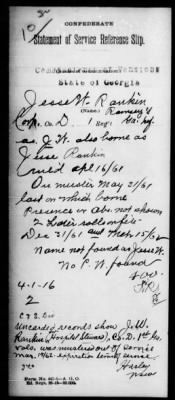 CONFEDERATE
Statement of Service Reference Slip.
State of Georgia
Jesse W. Rankin
(Name)
Corp. Co. D 1 Reg't Ga. Inf.
as J. W. also borne as
Jesse Rankin
Enl'd Apl 16/61
On muster May 31/61
last on which borne
Presence or abs. not shown
2 later rolls on file
Dec 31/61 and Mch 15/62
Name not found as Jesse W.
No P. W. found
4-1-16
2
Uncarded records show J. W.
Rankin, Hospital Steward, Co. D. 1st Ga.
vols. was mustered out of service
Mar. 1862 - expiration term of service